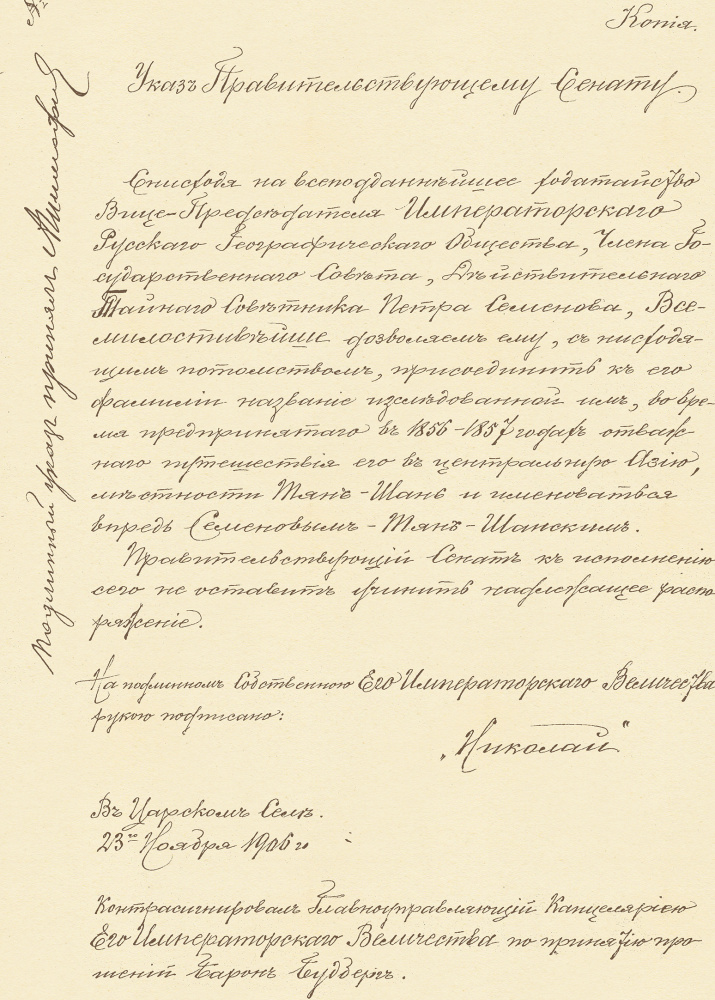 Копія.
Указъ Правительствующему Сенату.
Снисходя на всеподданнѣйшее ходатайство
Вице-Предсѣдателя Императорскаго
Русскаго Географическаго Общества, Члена Го-
сударственнаго Совѣта, Дѣйствительнаго
Тайнаго Совѣтника Петра Семенова, Все-
милостивѣйше дозволяемъ ему, съ нисходя-
щимъ потомствомъ, присоединить къ его
фамиліи названіе изслѣдованной имъ, во вре-
мя предпринятаго въ 1856-1857 годахъ отваж-
наго путешествія его въ центральную Азію,
мѣстности Тянь-Шань и именоваться
впредь Семеновымъ-Тянъ-Шанскимъ.
Правительствующій Сенатъ къ исполненію
сего не оставитъ учинить надлежащее распо
ряженіе.
На подлинномъ Собственною Его Императорскаго Величества
рукою подписано:
„Николай"
Въ Царскомъ Селѣ.
23го Ноября 1906 г.
Контрасигнировалъ Главноуправляющій Канцеляріею
Его Императорскаго Величества по принятію про-
шеній Баронъ Будбергъ.
Подлинный указъ принялъ